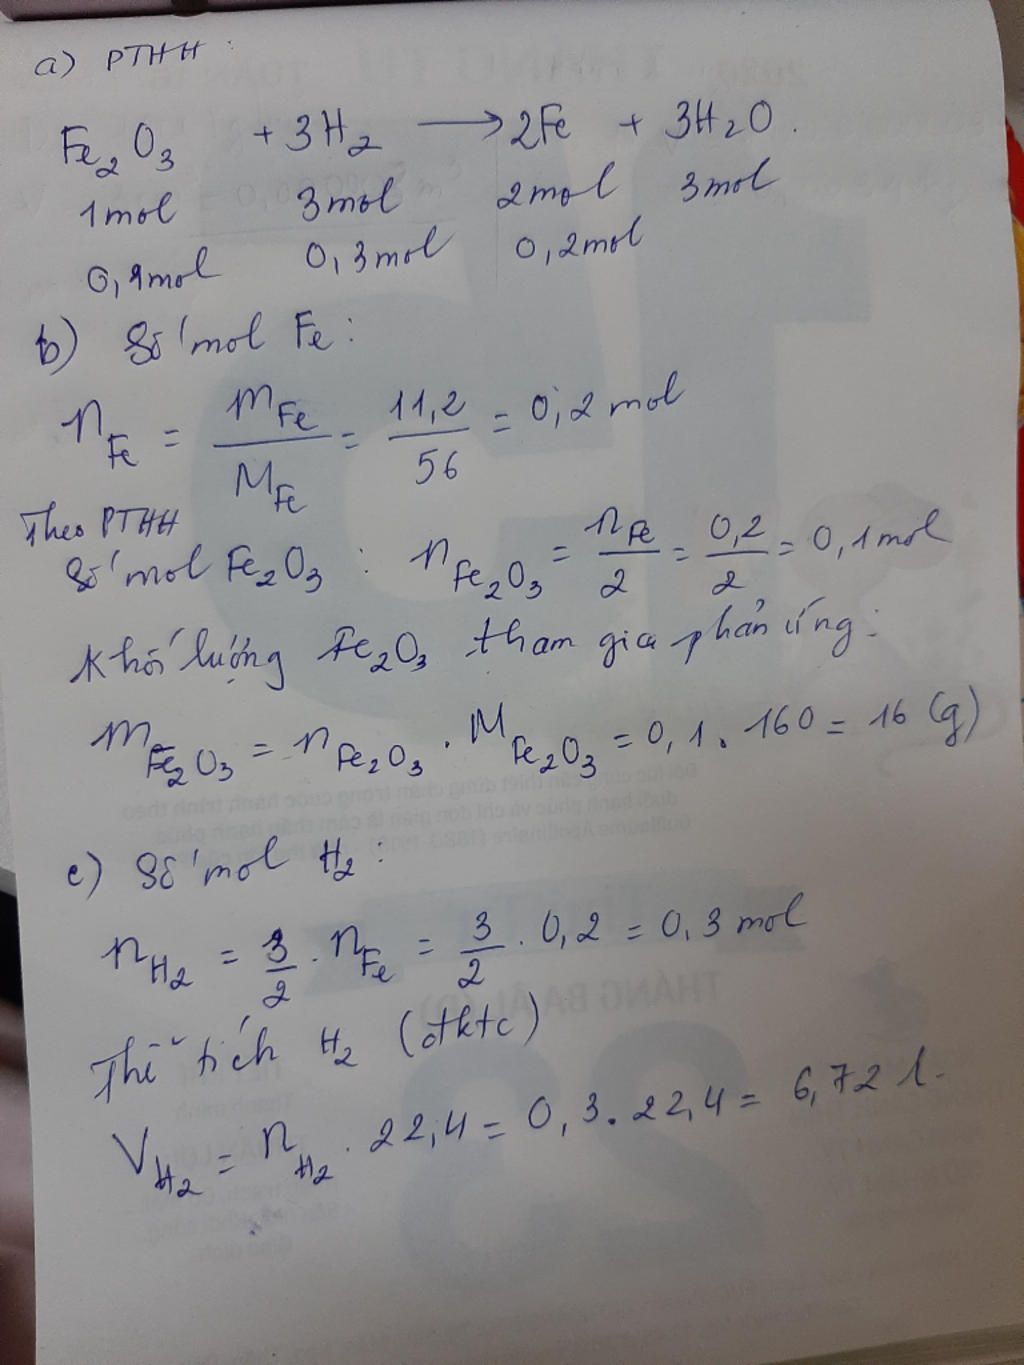 a) PTHH :
Fe2O3 + 3H2 → 2Fe + 3H2O.
1mol 3mol 2mol 3mol
0,1mol 0,3mol 0,2mol
b) Số mol Fe :
nFe = mFe / MFe = 11,2 / 56 = 0,2 mol
Theo PTHH
Số mol Fe2O3 : nFe2O3 = nFe / 2 = 0,2 / 2 = 0,1mol
Khối lượng Fe2O3 tham gia phản ứng:
mFe2O3 = nFe2O3 . MFe2O3 = 0,1 . 160 = 16 (g)
c) Số mol H2 :
nH2 = 3/2 . nFe = 3/2 . 0,2 = 0,3 mol
Thể tích H2 (đktc)
VH2 = nH2 . 22,4 = 0,3 . 22,4 = 6,72 l.